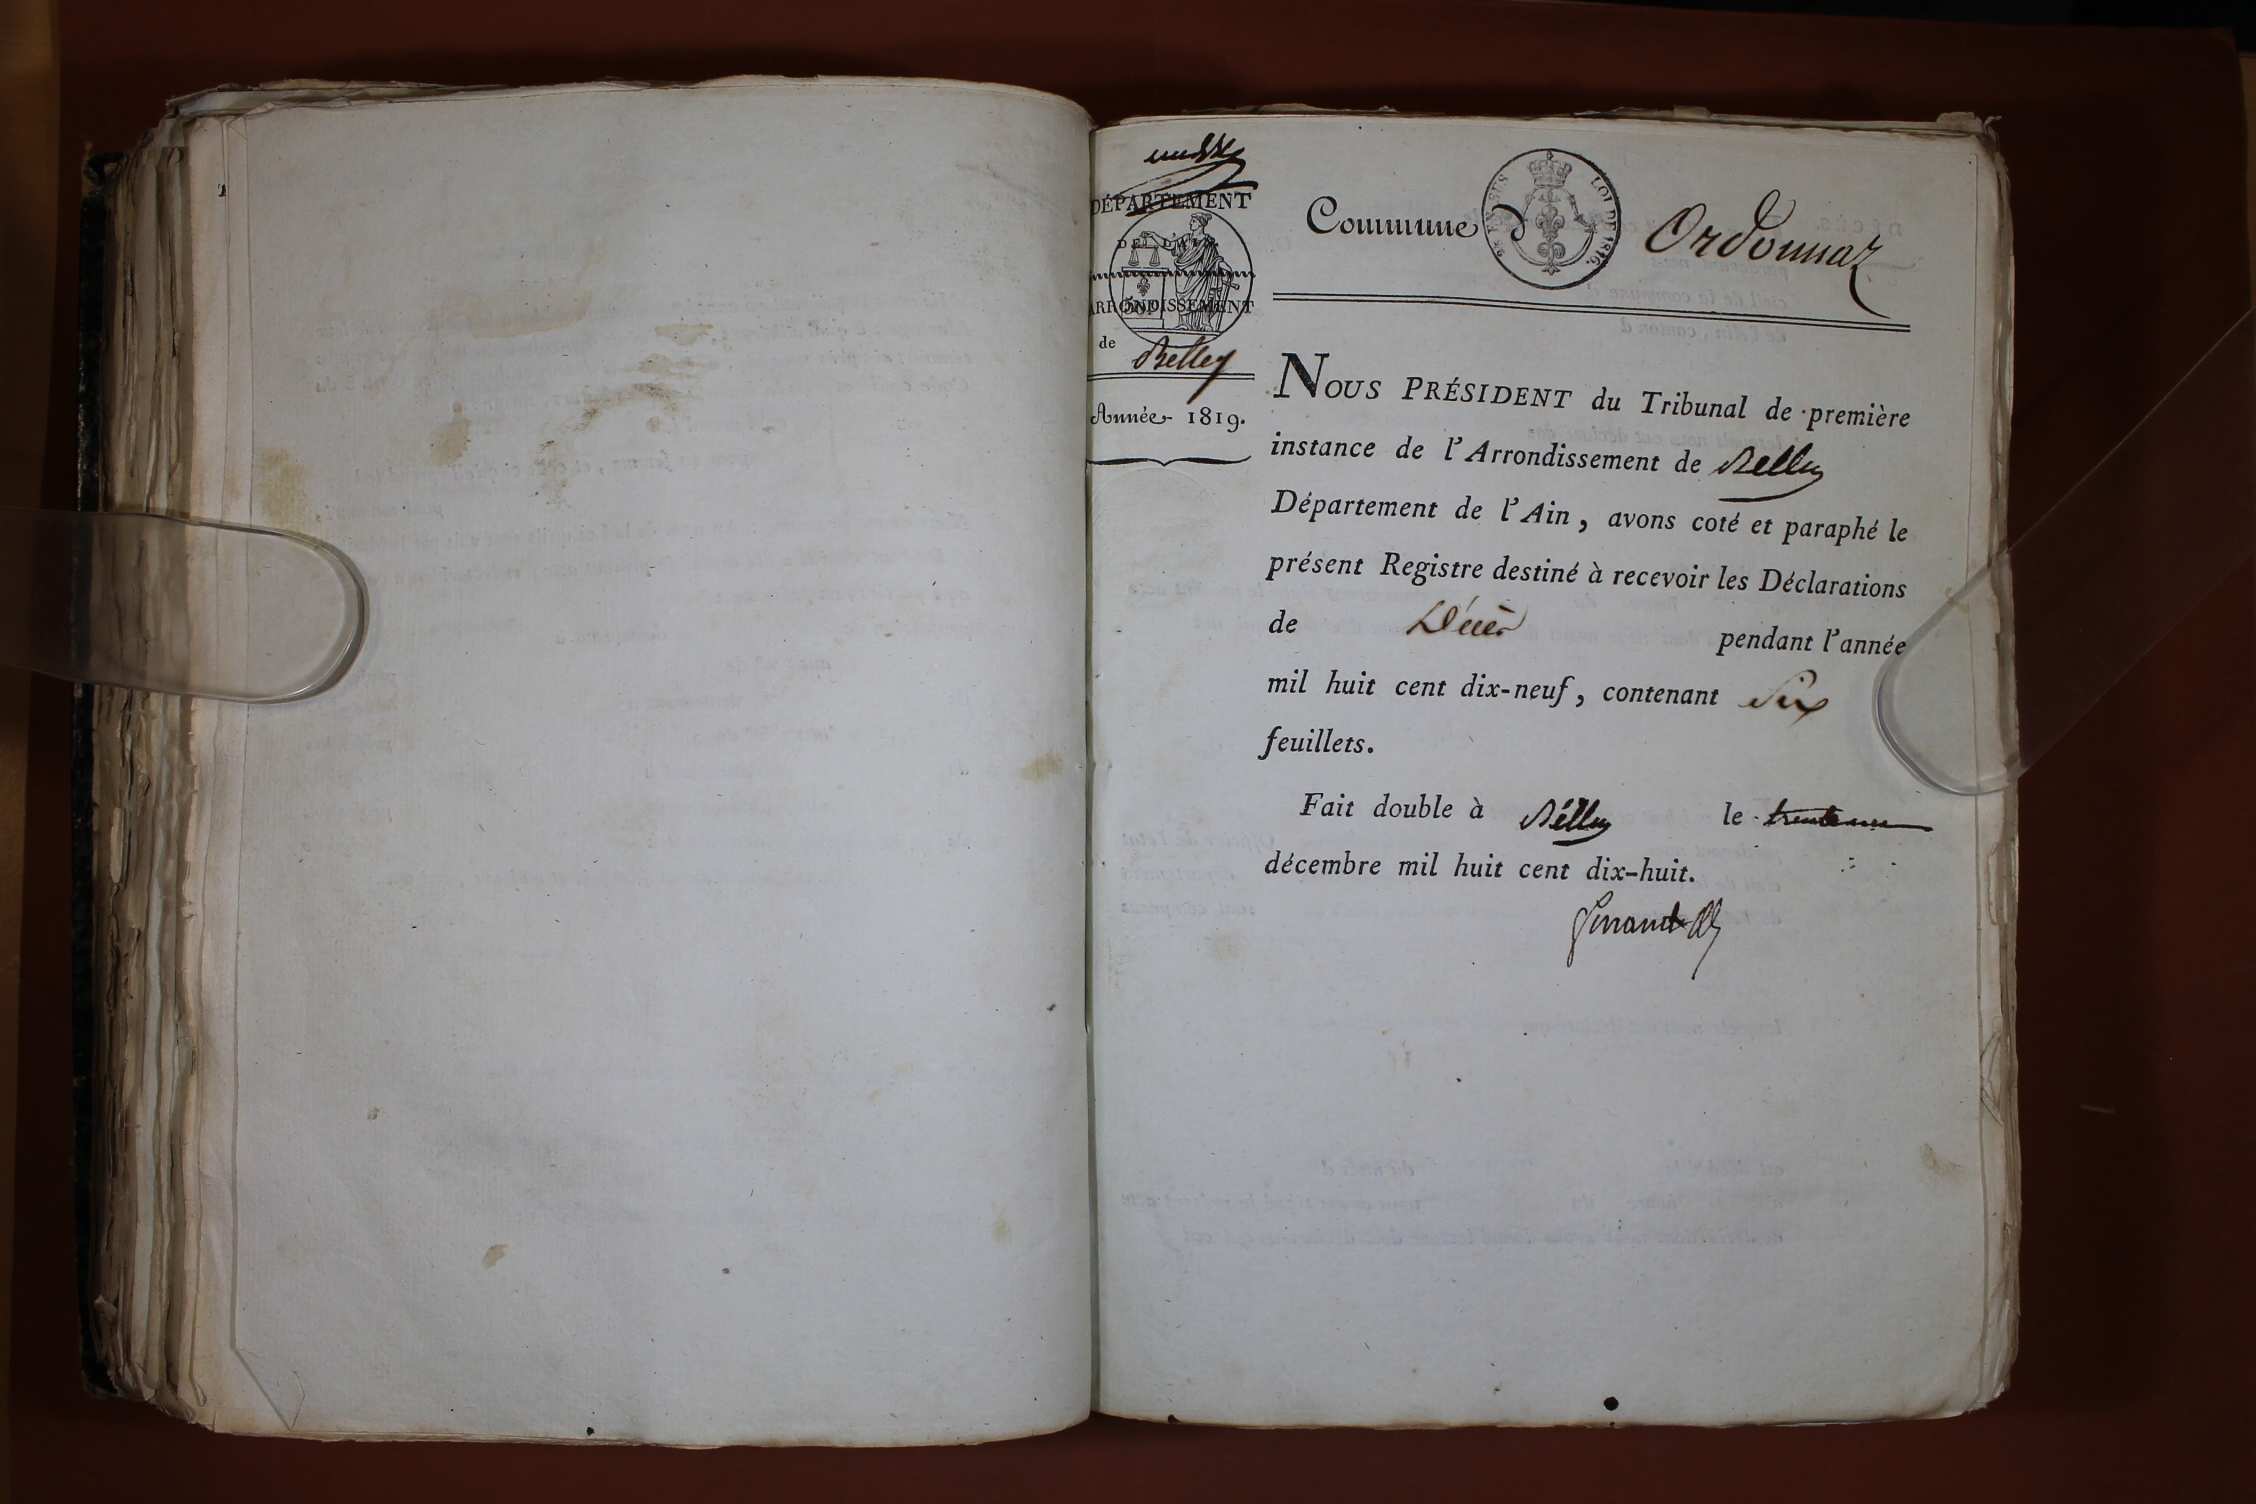 DÉPARTEMENT
DE L'AIN
ARRONDISSEMENT
de Belley
Année 1819.
Commune d Ordonnaz
EN SUS LOI DE 1816.
NOUS PRÉSIDENT du Tribunal de première
instance de l'Arrondissement de Belley
Département de l'Ain, avons coté et paraphé le
présent Registre destiné à recevoir les Déclarations
de Décès pendant l'année
mil huit cent dix-neuf, contenant Six
feuillets.
Fait double à Belley le trente un
décembre mil huit cent dix-huit.